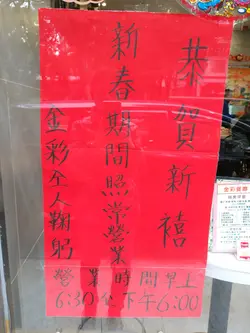 恭賀新禧
新春期間照常營業
金彩全人鞠躬
營業時間早上
6:30至下午6:00